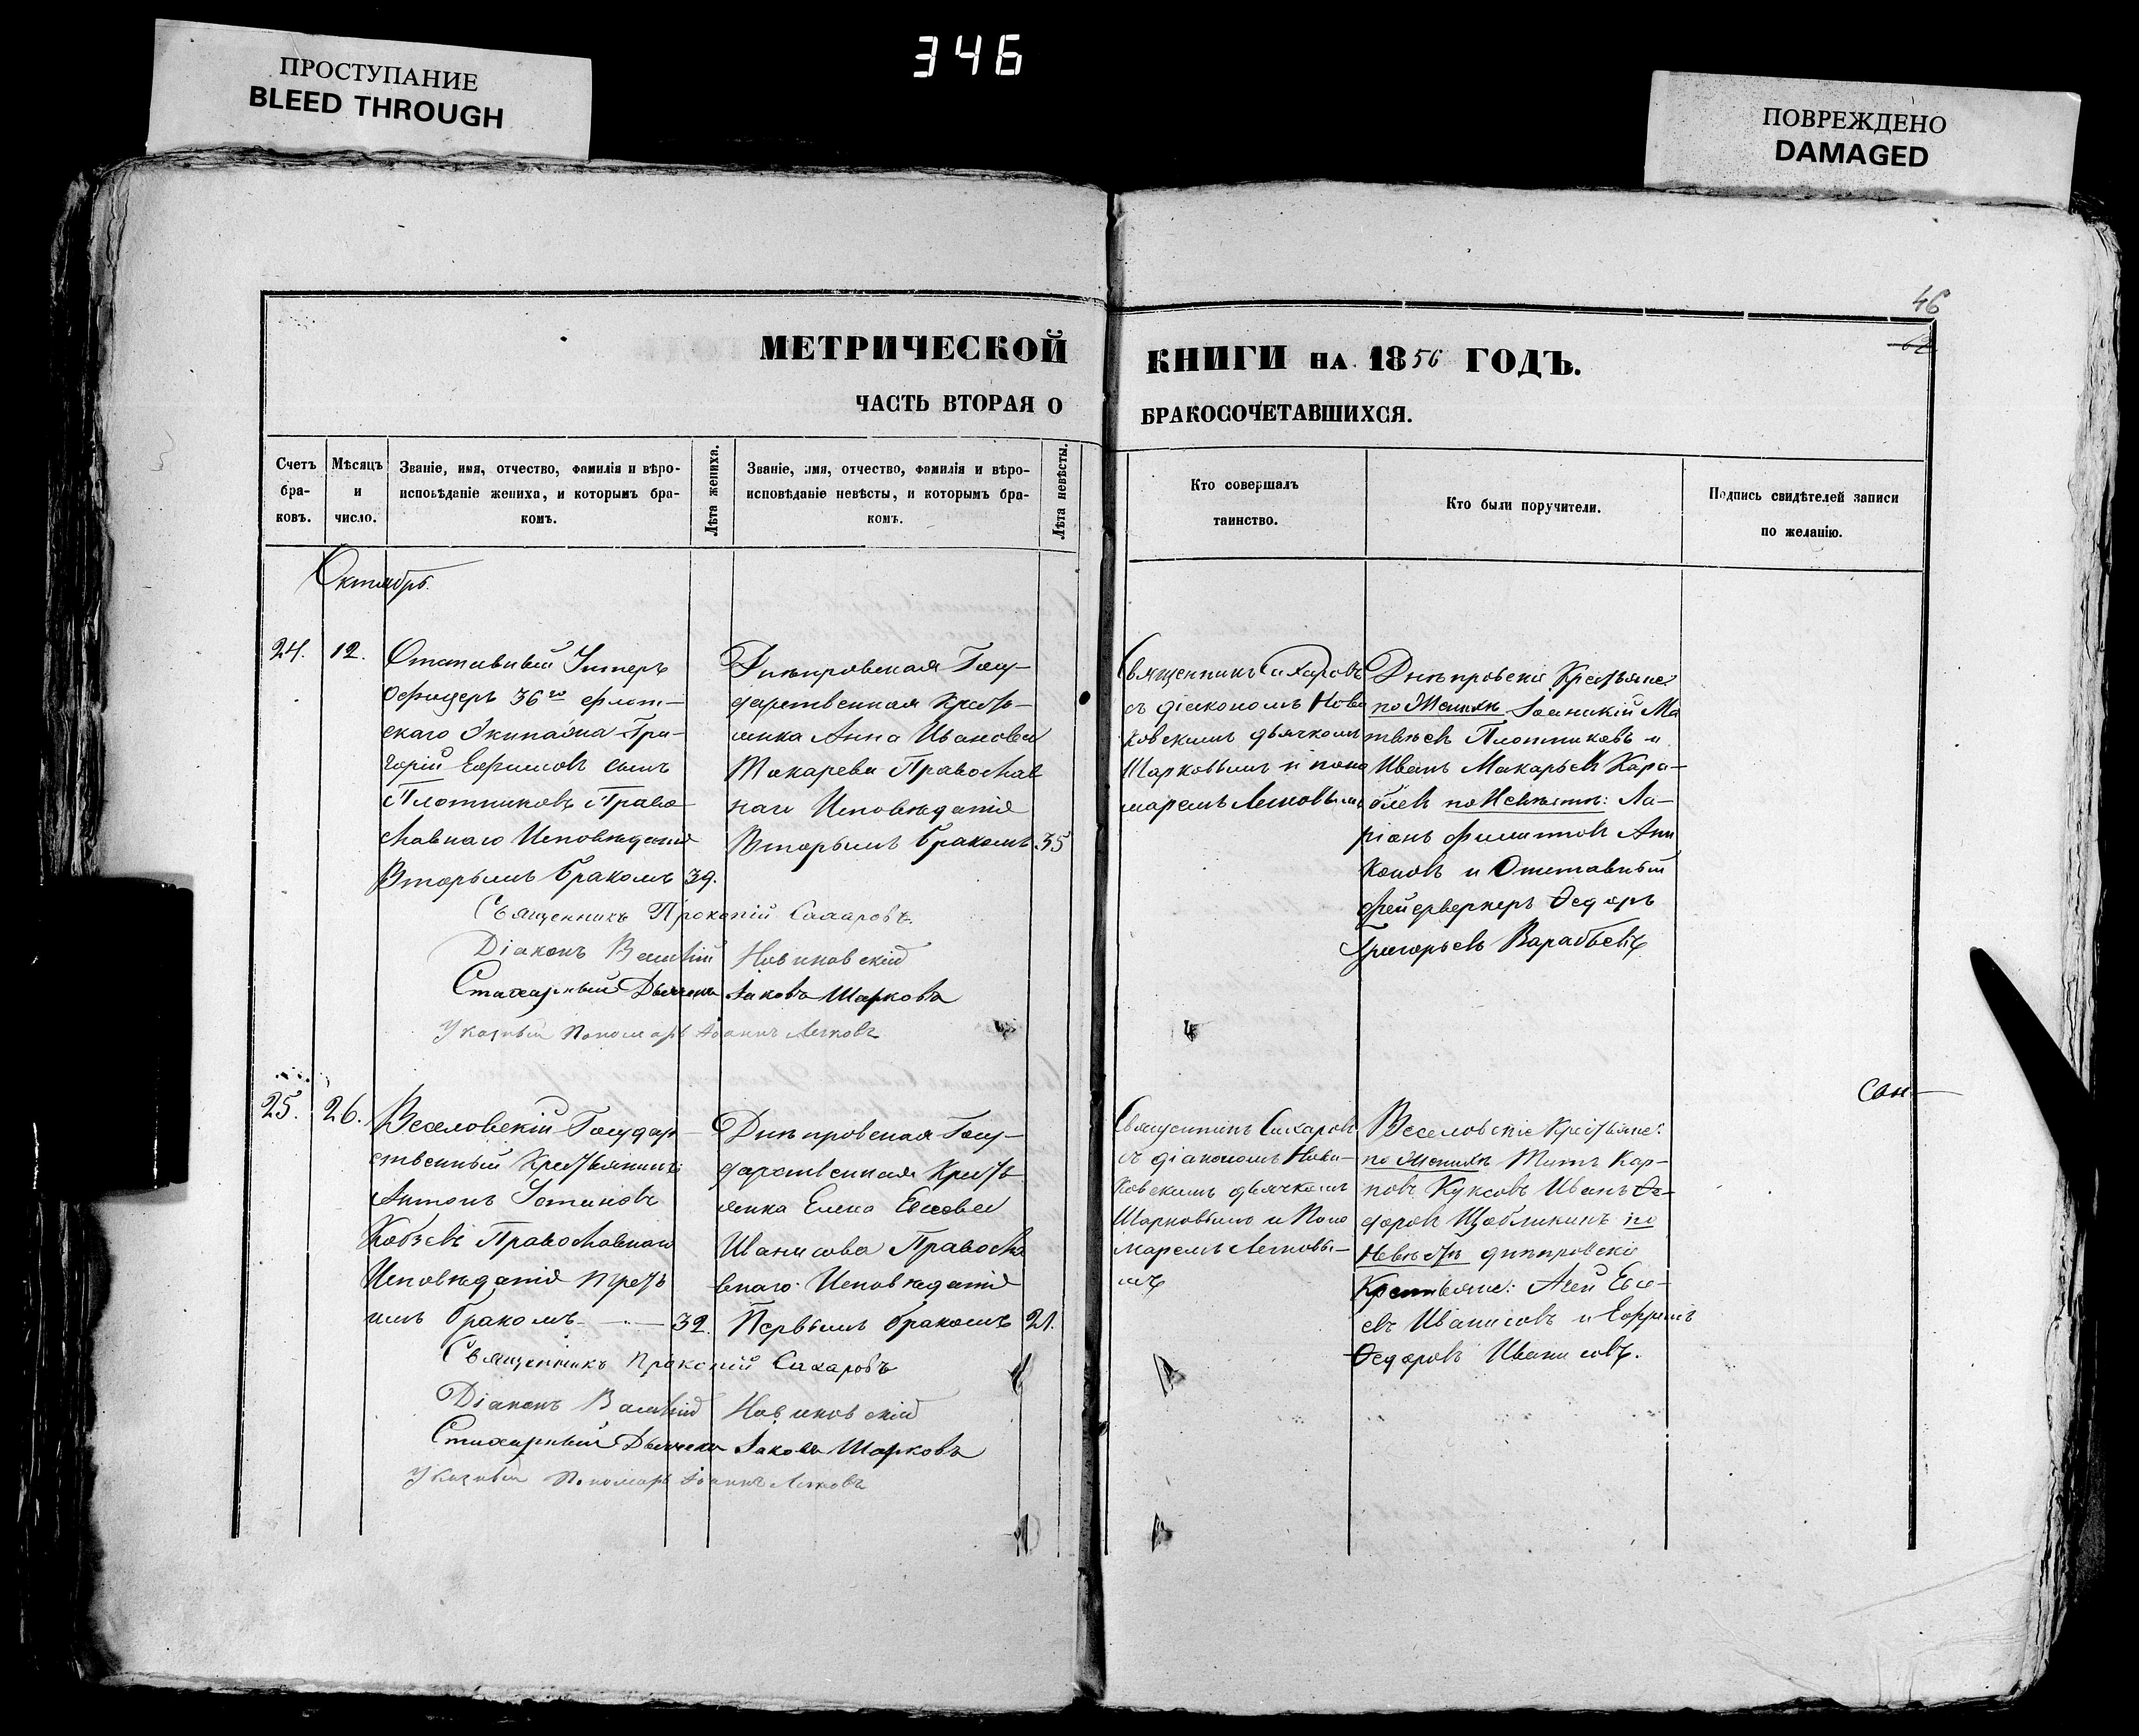 ПРОСТУПАНИЕ
BLEED THROUGH
346
ПОВРЕЖДЕНО
DAMAGED
46
МЕТРИЧЕСКОЙ КНИГИ НА 1856 ГОДЪ.
ЧАСТЬ ВТОРАЯ О БРАКОСОЧЕТАВШИХСЯ.
Счетъ бра-ковъ.
Мѣсяцъ и число.
Званіе, имя, отчество, фамилія и вѣро-
исповѣданіе жениха, и которымъ бра-
комъ.
Лѣта жениха.
Званіе, имя, отчество, фамилія и вѣро-
исповѣданіе невѣсты, и которымъ бра-
комъ.
Лѣта невѣсты.
Кто совершалъ
таинство.
Кто были поручители.
Подпись свидѣтелей записи
по желанію.
Октябрь.
24.
12.
Отставный Унтеръ
офицеръ 36го флот-
скаго Экипажа Гри-
горій Ефимовъ сынъ
Плотниковъ Право-
славнаго Исповѣданія
Вторымъ бракомъ
39.
Днѣпровская Госу-
дарственная Кресть-
янка Анна Иванова
Токарева Православ
наго Исповѣданія
Вторымъ бракомъ
35
Священникъ Сахаровъ
съ діакономъ Нови
ковскимъ дьячкомъ
Шарковымъ и поно
маремъ
Днѣпровскіе Крестьяне:
по Женихѣ Іоаникій Ма
твѣевъ Плотниковъ и
Иванъ Макарьевъ Кара-
блевъ по Невѣстѣ: Ла-
ріонъ Филиповъ Апи
коновъ и Отставный
фейерверкеръ Ѳедоръ
Григорьевъ Варабьевъ
Священникъ Прокопій Сахаровъ.
Діаконъ Василій Новиковскій
Стихарный Дьячекъ Іаковъ Шарковъ
Указный Пономарь Іоаннъ
25.
26.
Веселовскій Государ-
ственный Крестьянинъ
Антонъ Устиновъ
Кобзевъ Православнаго
Исповѣданія треть
имъ бракомъ
32.
Днѣпровская Госу-
дарственная Кресть
янка Елена Евсеева
Иванисова Правосла
внаго Исповѣданія
Первымъ бракомъ
21.
Священникъ Сахаровъ
съ діакономъ Нови-
ковскимъ дьячкомъ
Шарковымъ и Поно
маремъ
Веселовскіе Крестьяне:
по Женихѣ Титъ Кар-
повъ Куксовъ Иванъ Ѳе-
доровъ Щобликинъ по
Невѣстѣ днѣпровскіе
Крестьяне: Агей Евсе-
евъ Иванисовъ и Ефремъ
Ѳедоровъ Иванисовъ.
Сви-
Священникъ Прокопій Сахаровъ
Діаконъ Василій Новиковскій
Стихарный Дьячекъ Іаковъ Шарковъ
Указный Пономарь Іоаннъ